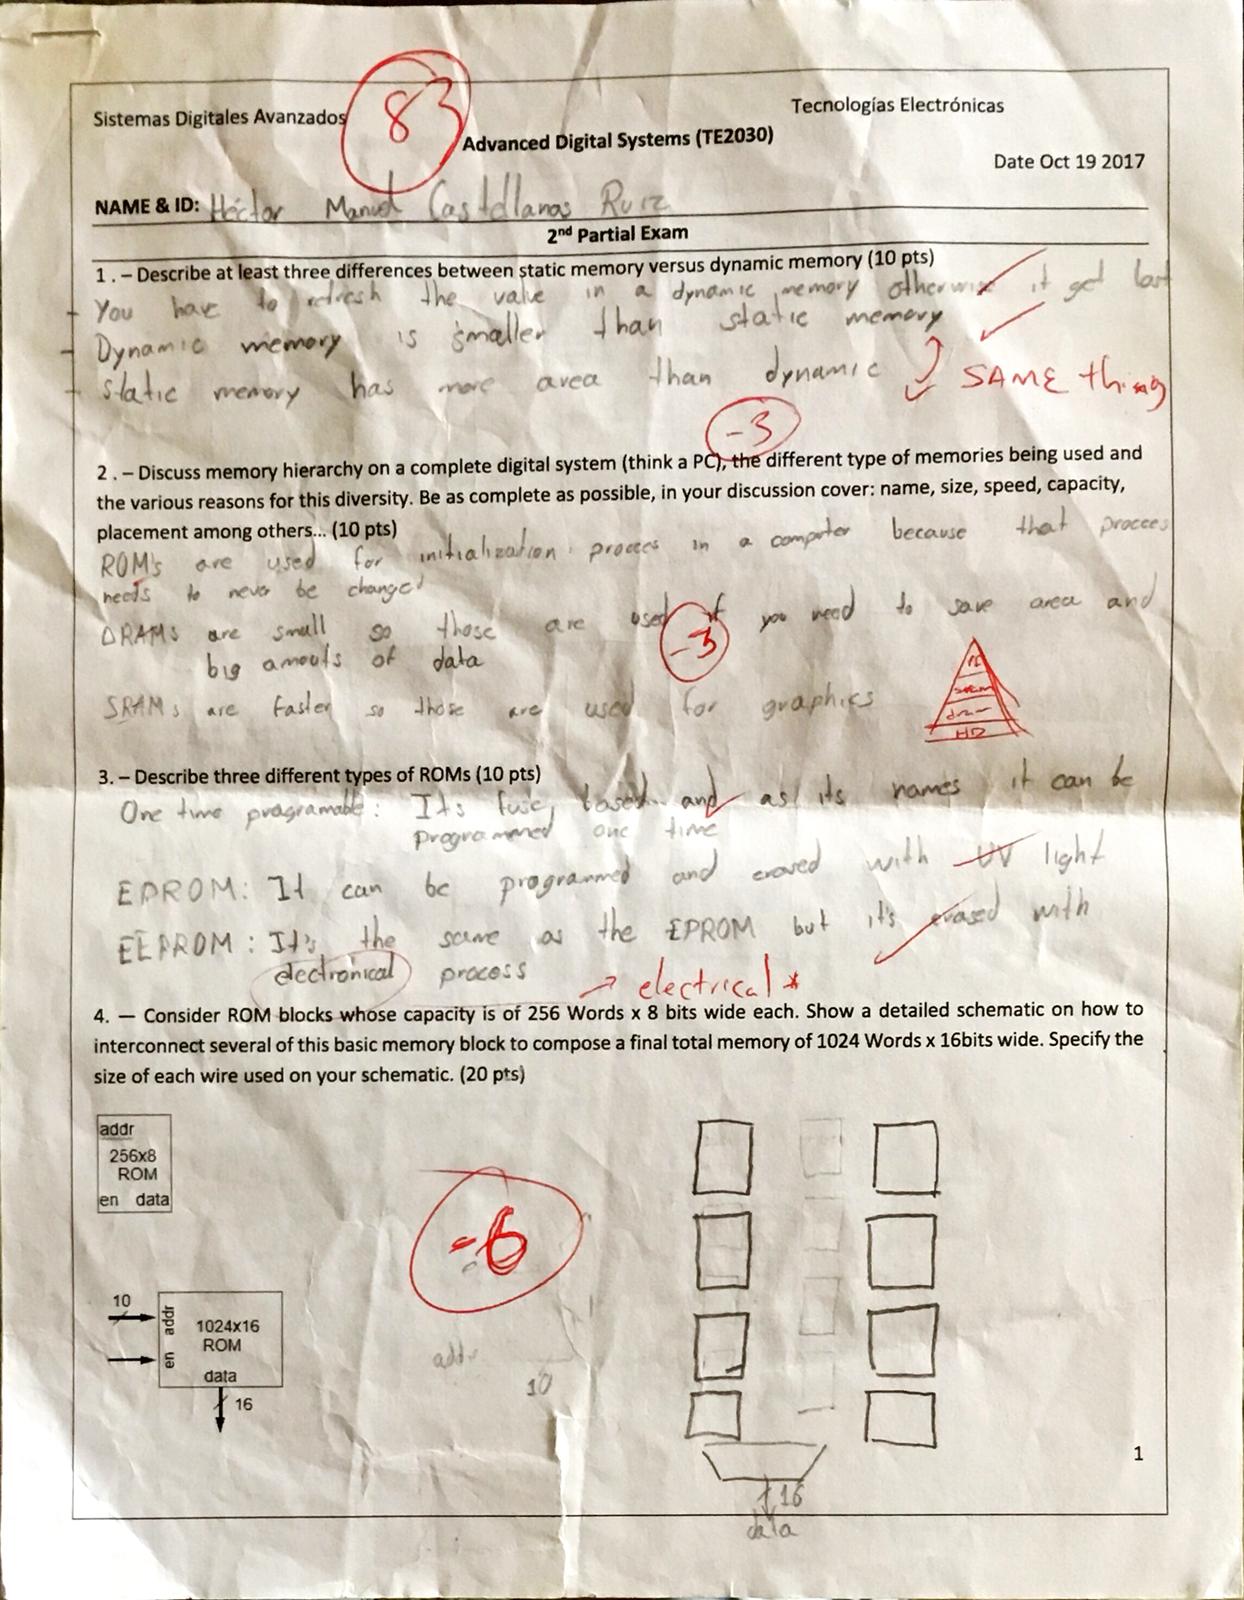 Sistemas Digitales Avanzados
83
Tecnologías Electrónicas
Advanced Digital Systems (TE2030)
Date Oct 19 2017
NAME & ID: Héctor Manuel Castellanos Ruiz
2nd Partial Exam
1 . – Describe at least three differences between static memory versus dynamic memory (10 pts)
- You have to refresh the value in a dynamic memory otherwise it get lost
- Dynamic memory is smaller than static memory
- Static memory has more area than dynamic
SAME thing
-3
2 . – Discuss memory hierarchy on a complete digital system (think a PC), the different type of memories being used and
the various reasons for this diversity. Be as complete as possible, in your discussion cover: name, size, speed, capacity,
placement among others... (10 pts)
ROM's are used for initialization procces in a computer because that procces
needs to never be changed
DRAMs are small so those are used if you need to save area and
big amouts of data
-3
SRAMs are faster so those are used for graphics
HD
3. – Describe three different types of ROMs (10 pts)
One time programable: It's fuse based and as its names it can be
programmed one time
EPROM: It can be programmed and erased with UV light
EEPROM: It's the same as the EPROM but it's erased with
electronical process
→ electrical *
4. — Consider ROM blocks whose capacity is of 256 Words x 8 bits wide each. Show a detailed schematic on how to
interconnect several of this basic memory block to compose a final total memory of 1024 Words x 16bits wide. Specify the
size of each wire used on your schematic. (20 pts)
addr
256x8
ROM
en data
-6
10
addr
en
1024x16
ROM
data
16
addr
10
16
data
1